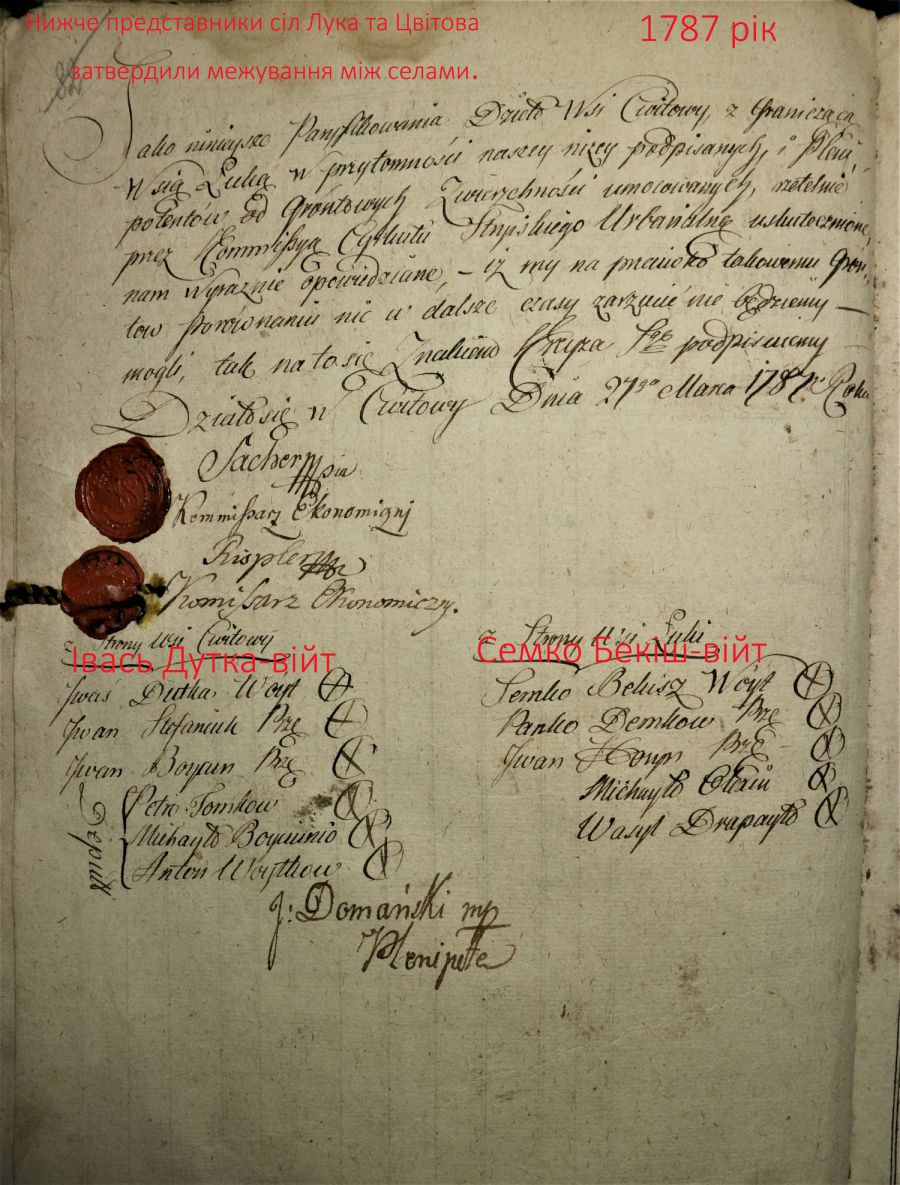 Нижче представники сіл Лука та Цвітова
1787 рік
затвердили межування між селами.
Jako ninieysze Dzieło Wsi Cwitowy, z Graniczącą
Wsią Łuką w przytomności naszey niżey podpisanych, i Pleni,
potentów od Gróntowych Zwierzchności umocowanych, rzetelnie
przez Kommissyą Cyrkułu Stryiskiego Urbarialną uskutecznione,
nam wyraznie opowiedziane, – iż my na przeciwko takowemu Gron,
tow Porównaniu nic w dalsze czasy zarzucić nie będziemy –
mogli, tak na to się Znakiem Krzyża S. podpisuiemy
Działo się w Cwitowy Dnia 27go Marca 1787 Roku
Sacher mpia
Kommissarz Ekonomiczny
Rispler
Komissarz Ekonomiczny.
z Strony Wsi Cwitowy
z Strony Wsi Łuki
Івась Дутка-війт
Семко Бекіш-війт
Iwaś Dutka Woyt
Iwan Stefaniuk Prz
Iwan Boyçun Prz
Petro Tomkow
Michayło
Anton Woytkow
Semko Bekisz Woyt
Panko Demkow Prz
Iwan Prz
Michayło
Wasyl Drapayło
J: Domański mp
Plenipote